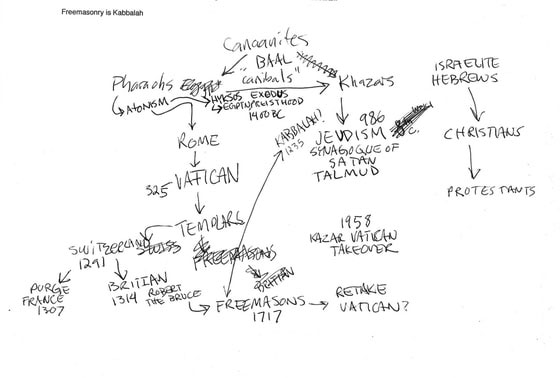 Freemasonry is Kabbalah
Canaanites
BAAL
"canibals"
Pharaohs
Khazars
ISRAELITE
HEBREWS
ATONISM
HYKSOS EXODUS
EGYPT/PRIESTHOOD
1400 BC
ROME
KABBALAH?
1235
986
JEUDISM
SYNAGOGUE OF
SATAN
TALMUD
CHRISTIANS
325 VATICAN
PROTESTANTS
TEMPLARS
SWITZERLAND
1291
FREEMASONS
1958
KAZAR VATICAN
TAKEOVER
PURGE
FRANCE
1307
BRITIAN
1314 ROBERT
THE BRUCE
BRITIAN
FREEMASONS
1717
RETAKE
VATICAN?